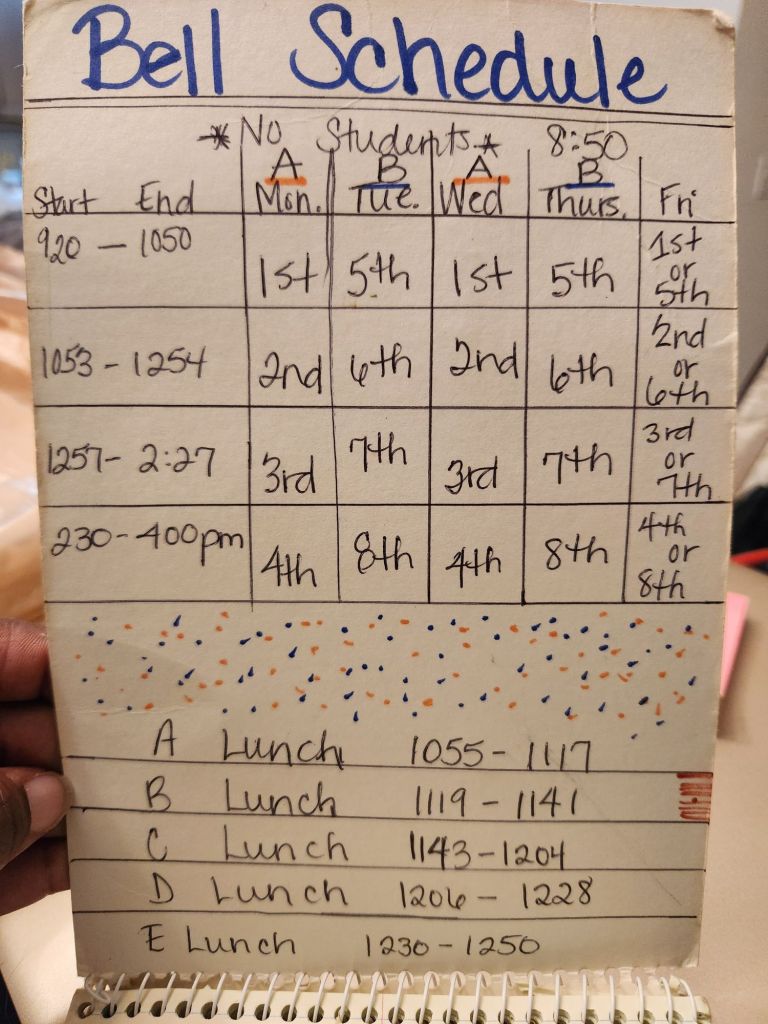 Bell Schedule
* No Students * 8:50
A B A B
Start End Mon. Tue. Wed Thurs. Fri
920 - 1050 1st 5th 1st 5th 1st or 5th
1053 - 1254 2nd 6th 2nd 6th 2nd or 6th
1257 - 2:27 3rd 7th 3rd 7th 3rd or 7th
230 - 400pm 4th 8th 4th 8th 4th or 8th
A Lunch 1055 - 1117
B Lunch 1119 - 1141
C Lunch 1143 - 1204
D Lunch 1206 - 1228
E Lunch 1230 - 1250